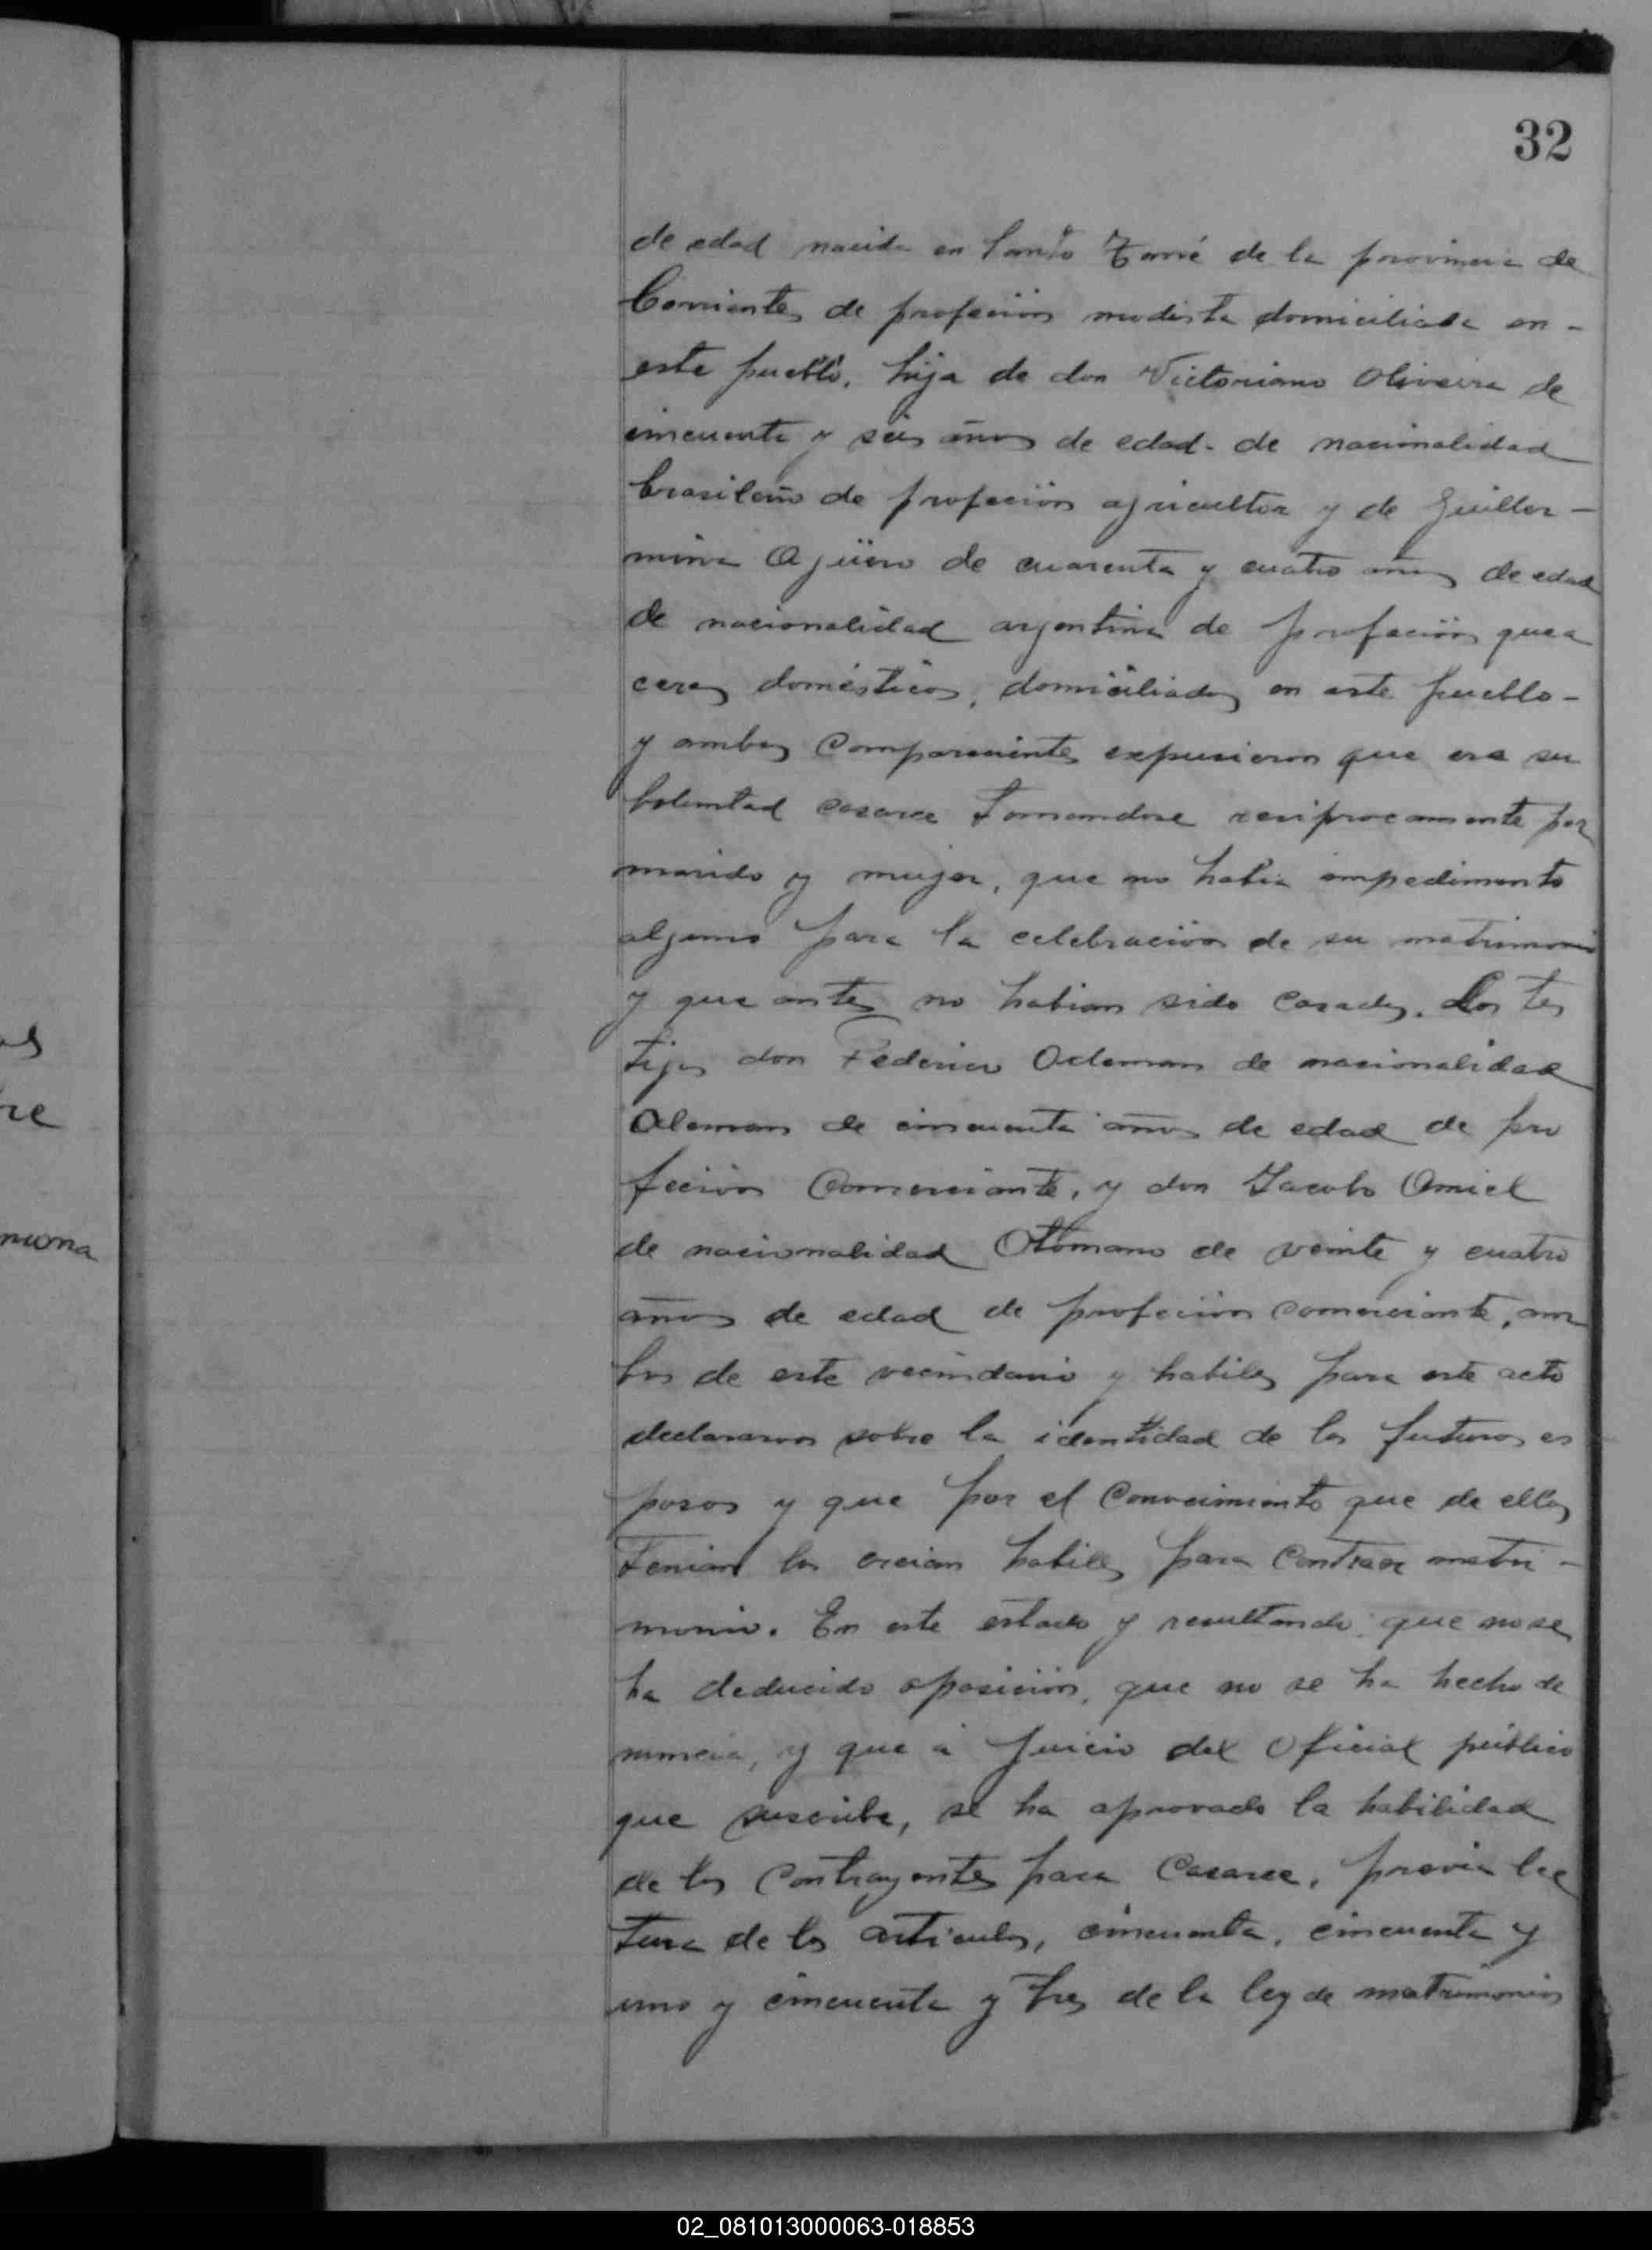 32
de edad nacida en Santo Tomé de la provincia de
Corrientes de profeción modista domiciliada en -
este pueblo, hija de don Victoriano Oliveira de
cincuenta y seis años de edad. de nacionalidad
brasileño de profeción agricultor y de Guiller -
mina Agüero de cuarenta y cuatro años de edad
de nacionalidad argentina de profeción quea
ceres domésticos, domiciliados en este pueblo -
y ambos comparecientes expusieron que era su
boluntad casarce tomandose resiprocamente por
marido y mujer, que no habia impedimento
alguno para la celebración de su matrimonio
y que antes no habian sido casados. Los tes
tigos don Federico de nacionalidad
Aleman de cincuenta años de edad de pro
feción Comerciante, y don Jacobo Amiel
de nacionalidad Otomano de veinte y cuatro
años de edad de profeción comerciante, am
bos de este vecindario y habiles para este acto
declararon sobre la identidad de los futuros es
posos y que por el conocimiento que de ellos
tenian los creian habiles para contraer matri -
monio. En este estado y resultando que no se
ha deducido oposición, que no se ha hecho de
nuncia, y que á juicio del Oficial público
que suscribe, se ha aprovado la habilidad
de los contrayentes para casarce, previa lec
tura de los articulos, cincuenta, cincuenta y
uno y cincuenta y tres de la ley de matrimonios
os
re
nuona
02_081013000063-018853